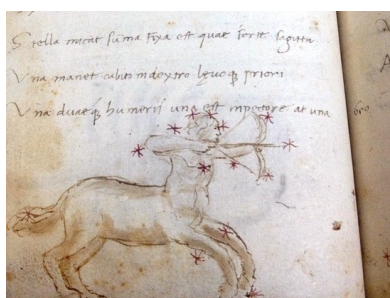 Stella micat su̅ma fixa est quae forte sagitta
Vna manet cubito in dextro leuoq̧ priori
Vna duaeq̧ humeris una est in pectore at una